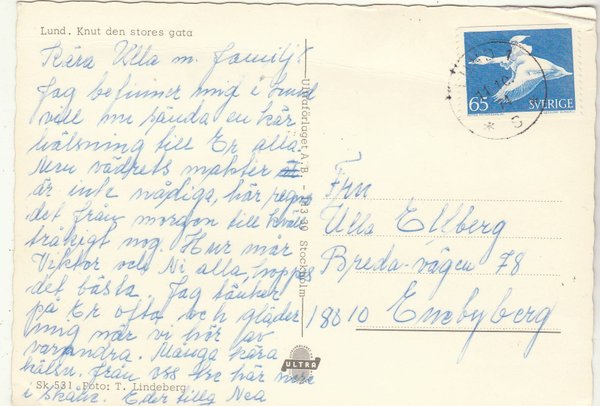 Lund. Knut den stores gata
Kära Ulla m. familj!
Jag befinner mig i Lund
vill nu sända en kär
hälsning till Er alla.
Men vädrets makter
är inte nådiga, här regnar
det från morgon till kväll
tråkigt nog. Hur mår
Viktor och Ni alla, hoppas
det bästa. Jag tänker
på Er ofta och gläder
mig när vi hör av
varandra. Många kära
hälsn. från oss här nere
i Skåne. Eder tillg Nea
Sk 531 Foto: T. Lindeberg
Ultraförlaget A.B. - Stockholm
ULTRA
65 SVERIGE
Fru
Ulla Ellberg
Breda-vägen 78
18010 Enebyberg